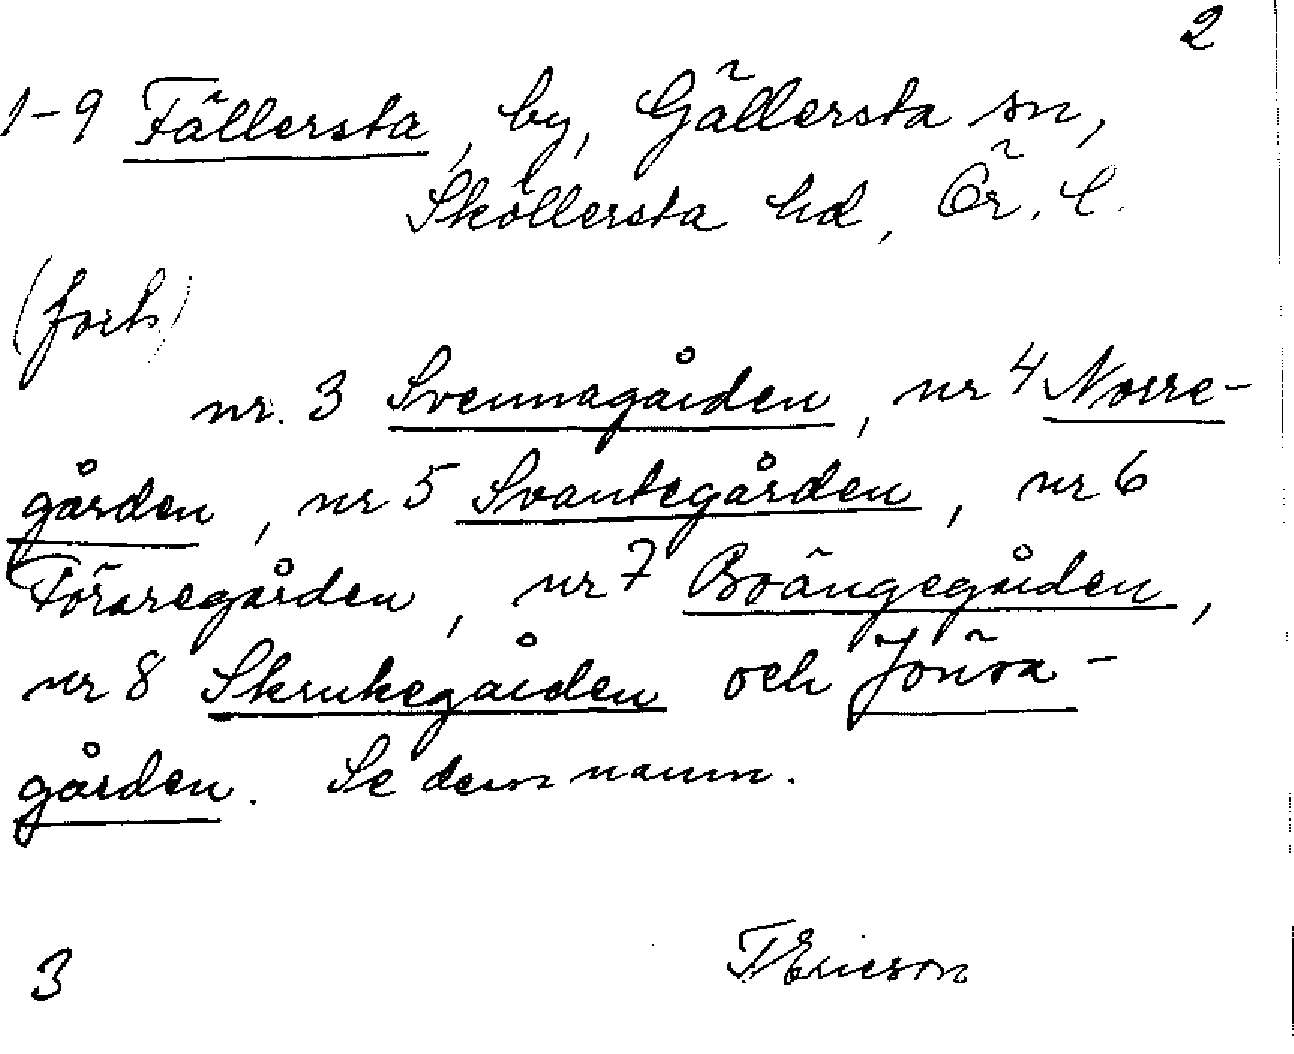 2
1-9 Fällersta, by, Gällersta sn,
Sköllersta hd, Ör. l.
(forts)
nr. 3 Svennagården, nr 4 Norre-
gården, nr 5 Svantegården, nr 6
Föraregården, nr 7 Brängegården,
nr 8 Skrukegården och Jönsa-
gården. Se dem namn.
3 TEricson